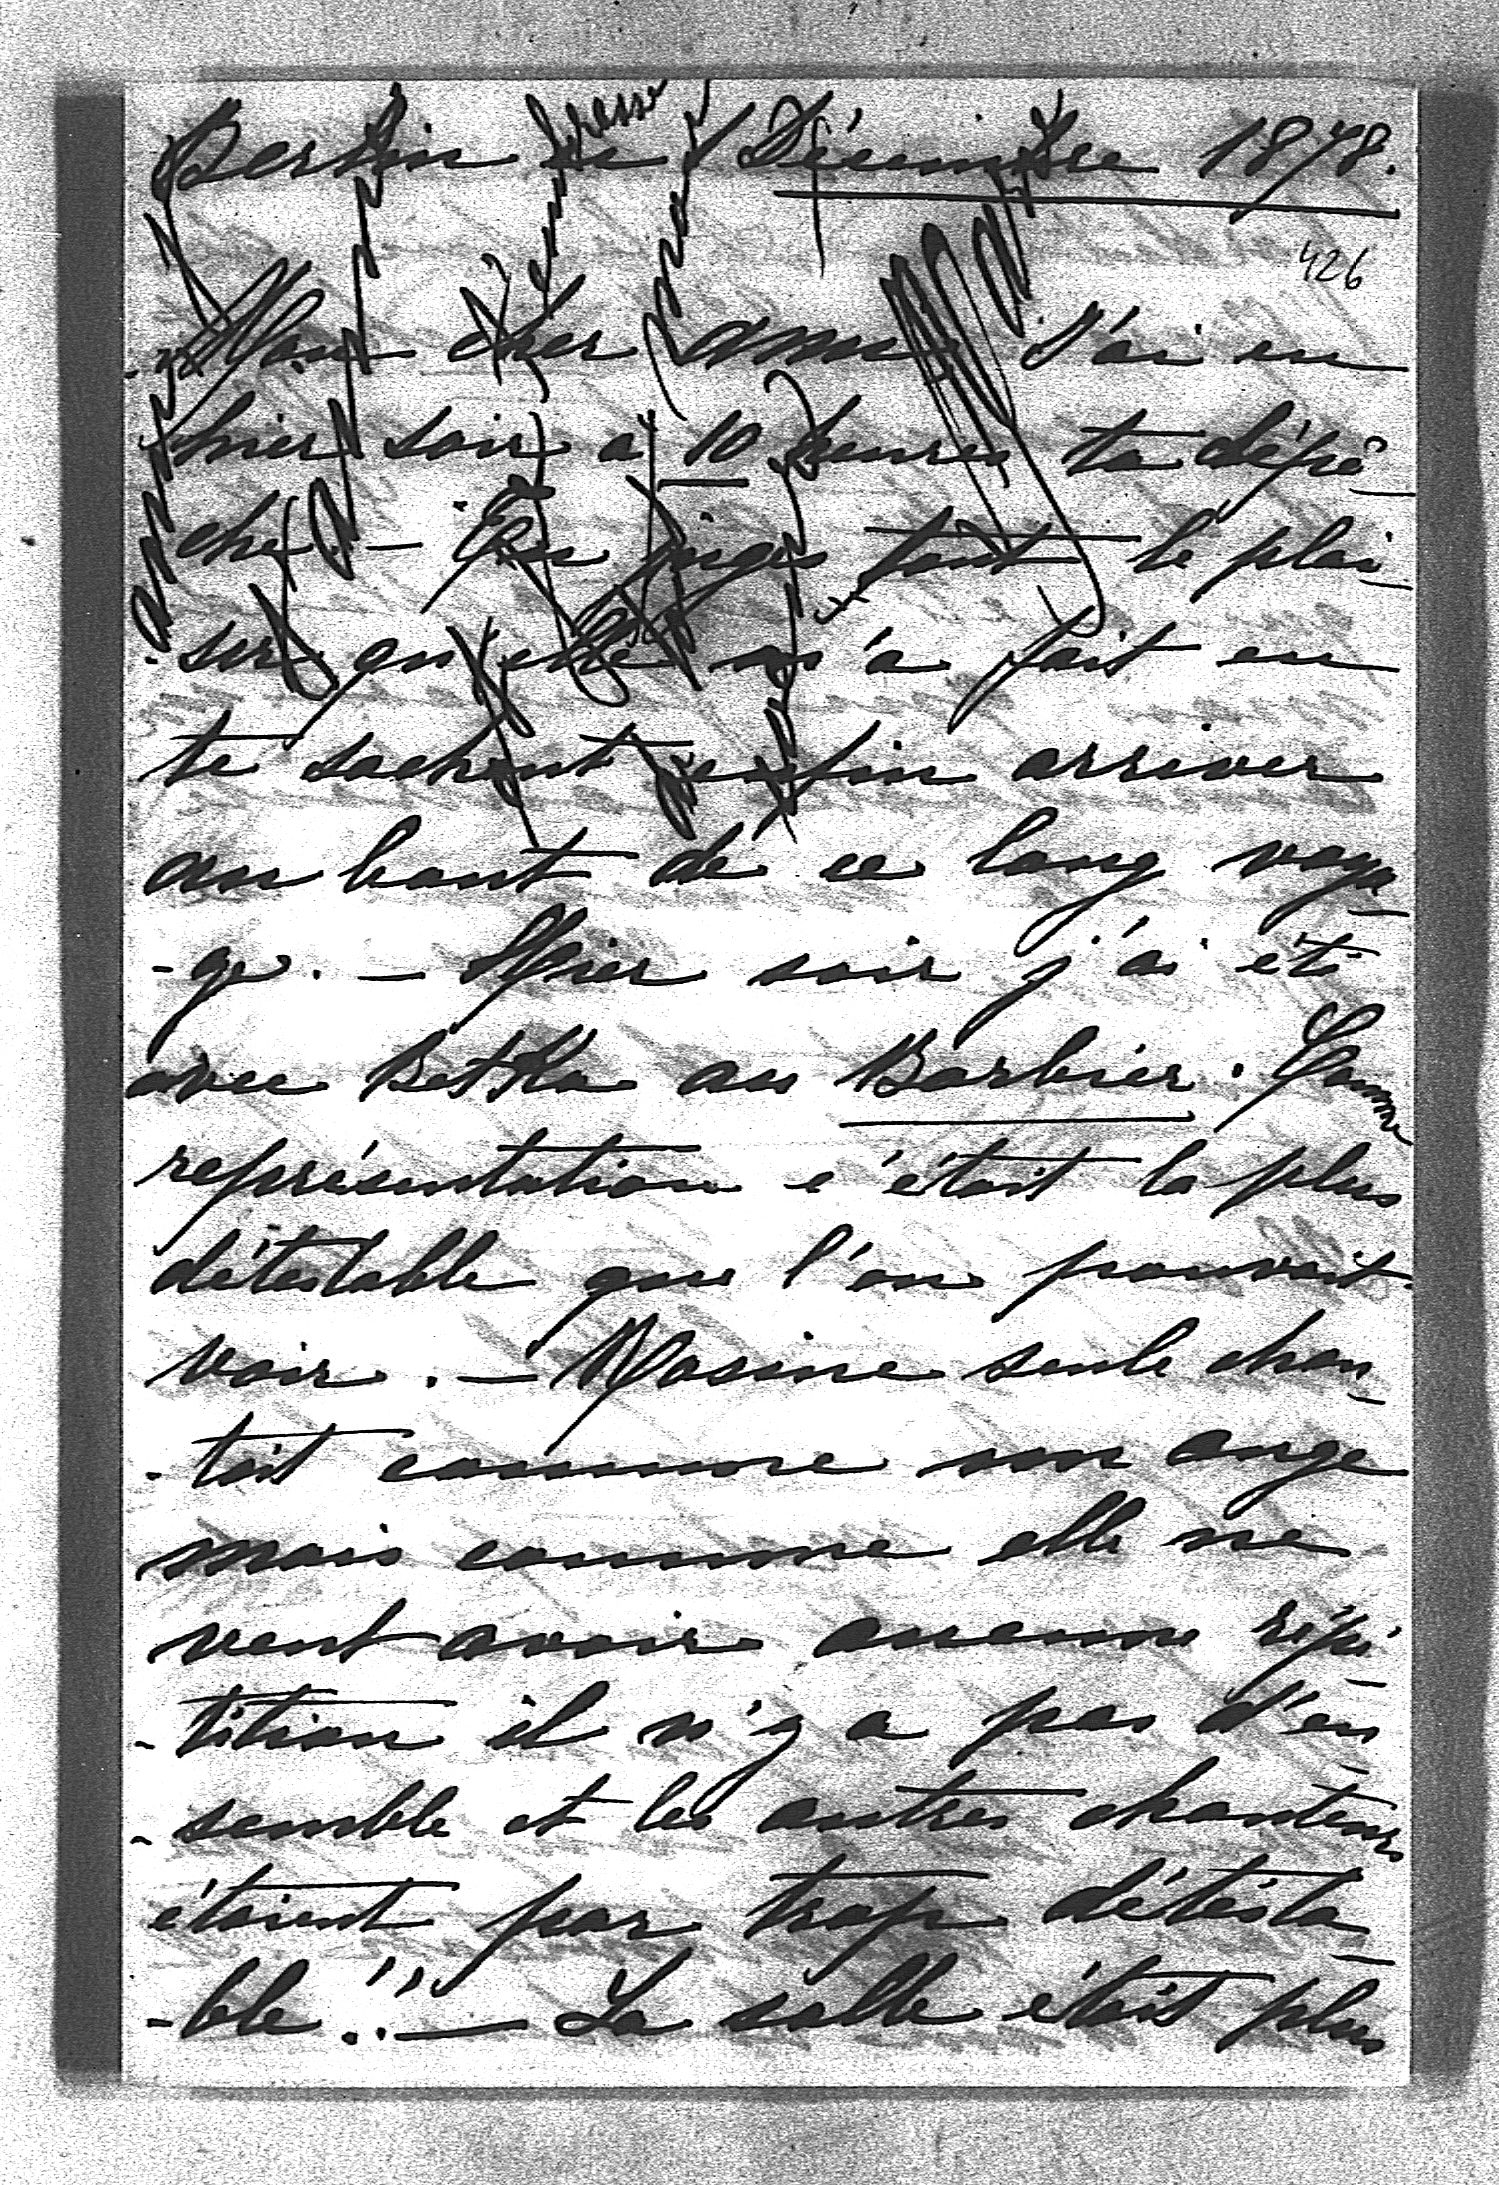 Berlin le 1 Décembre 1878.
426
Mon cher ami J'ai eu
hier soir a 10 heures ta dépê_
che. — Tu juges tout le plai_
-sir qu'elle m'a fait en
te sachant enfin arriver
au bout de ce long voya_
-ge. — Hier soir j'ai été
avec Betka au Barbier. Comme
représentation c'était la plus
détestable que l'on pouvait
voir. — Rosine seule chan_
-tait comme un ange
mais comme elle ne
veut avoir aucune répé_
-tition il n'y a pas d'en
-semble et les autres chanteurs
étaient par trop détesta_
-ble!! — La salle était plus